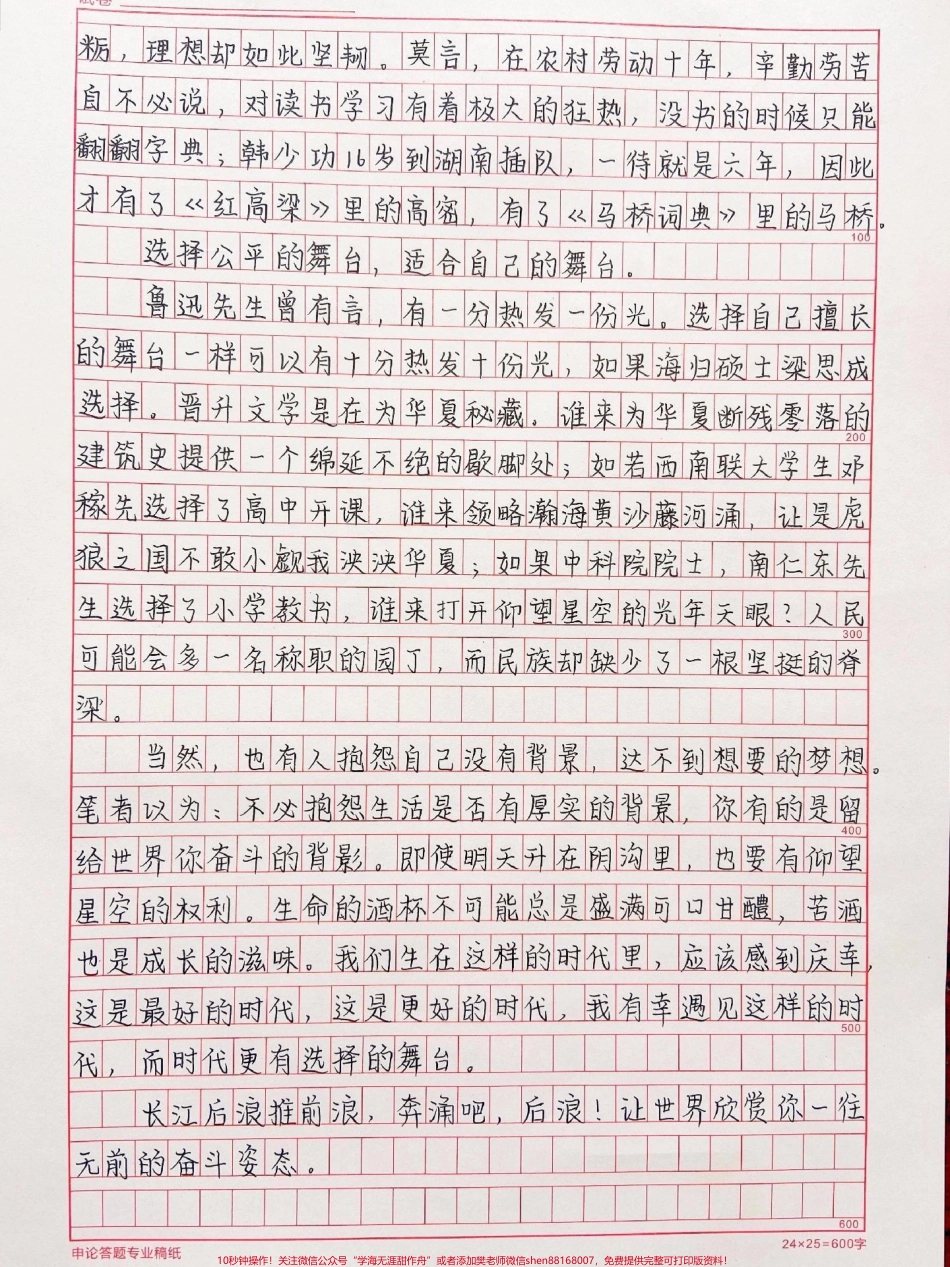 试卷
粝，理想却如此坚韧。莫言，在农村劳动十年，辛勤劳苦
自不必说，对读书学习有着极大的狂热，没书的时候只能
翻翻字典；韩少功16岁到湖南插队，一待就是六年，因此
才有了《红高梁》里的高密，有了《马桥词典》里的马桥。
100
选择公平的舞台，适合自己的舞台。
鲁迅先生曾有言，有一分热发一份光。选择自己擅长
的舞台一样可以有十分热发十份光，如果海归硕士梁思成
选择。晋升文学是在为华夏秘藏。谁来为华夏断残零落的
200
建筑史提供一个绵延不绝的歇脚处；如若西南联大学生邓
稼先选择了高中开课，谁来领略瀚海黄沙藤河涌，让是虎
狼之国不敢小觑我泱泱华夏；如果中科院院士，南仁东先
生选择了小学教书，谁来打开仰望星空的光年天眼？人民
300
可能会多一名称职的园丁，而民族却缺少了一根坚挺的脊
梁。
当然，也有人抱怨自己没有背景，达不到想要的梦想。
笔者以为：不必抱怨生活是否有厚实的背景，你有的是留
400
给世界你奋斗的背影。即使明天升在阴沟里，也要有仰望
星空的权利。生命的酒杯不可能总是盛满可口甘醴，苦酒
也是成长的滋味。我们生在这样的时代里，应该感到庆幸，
这是最好的时代，这是更好的时代，我有幸遇见这样的时
500
代，而时代更有选择的舞台。
长江后浪推前浪，奔涌吧，后浪！让世界欣赏你一往
无前的奋斗姿态。
600
申论答题专业稿纸
24×25=600字
10秒钟操作！关注微信公众号“学海无涯甜作舟”或者添加樊老师微信shen88168007，免费提供完整可打印版资料！